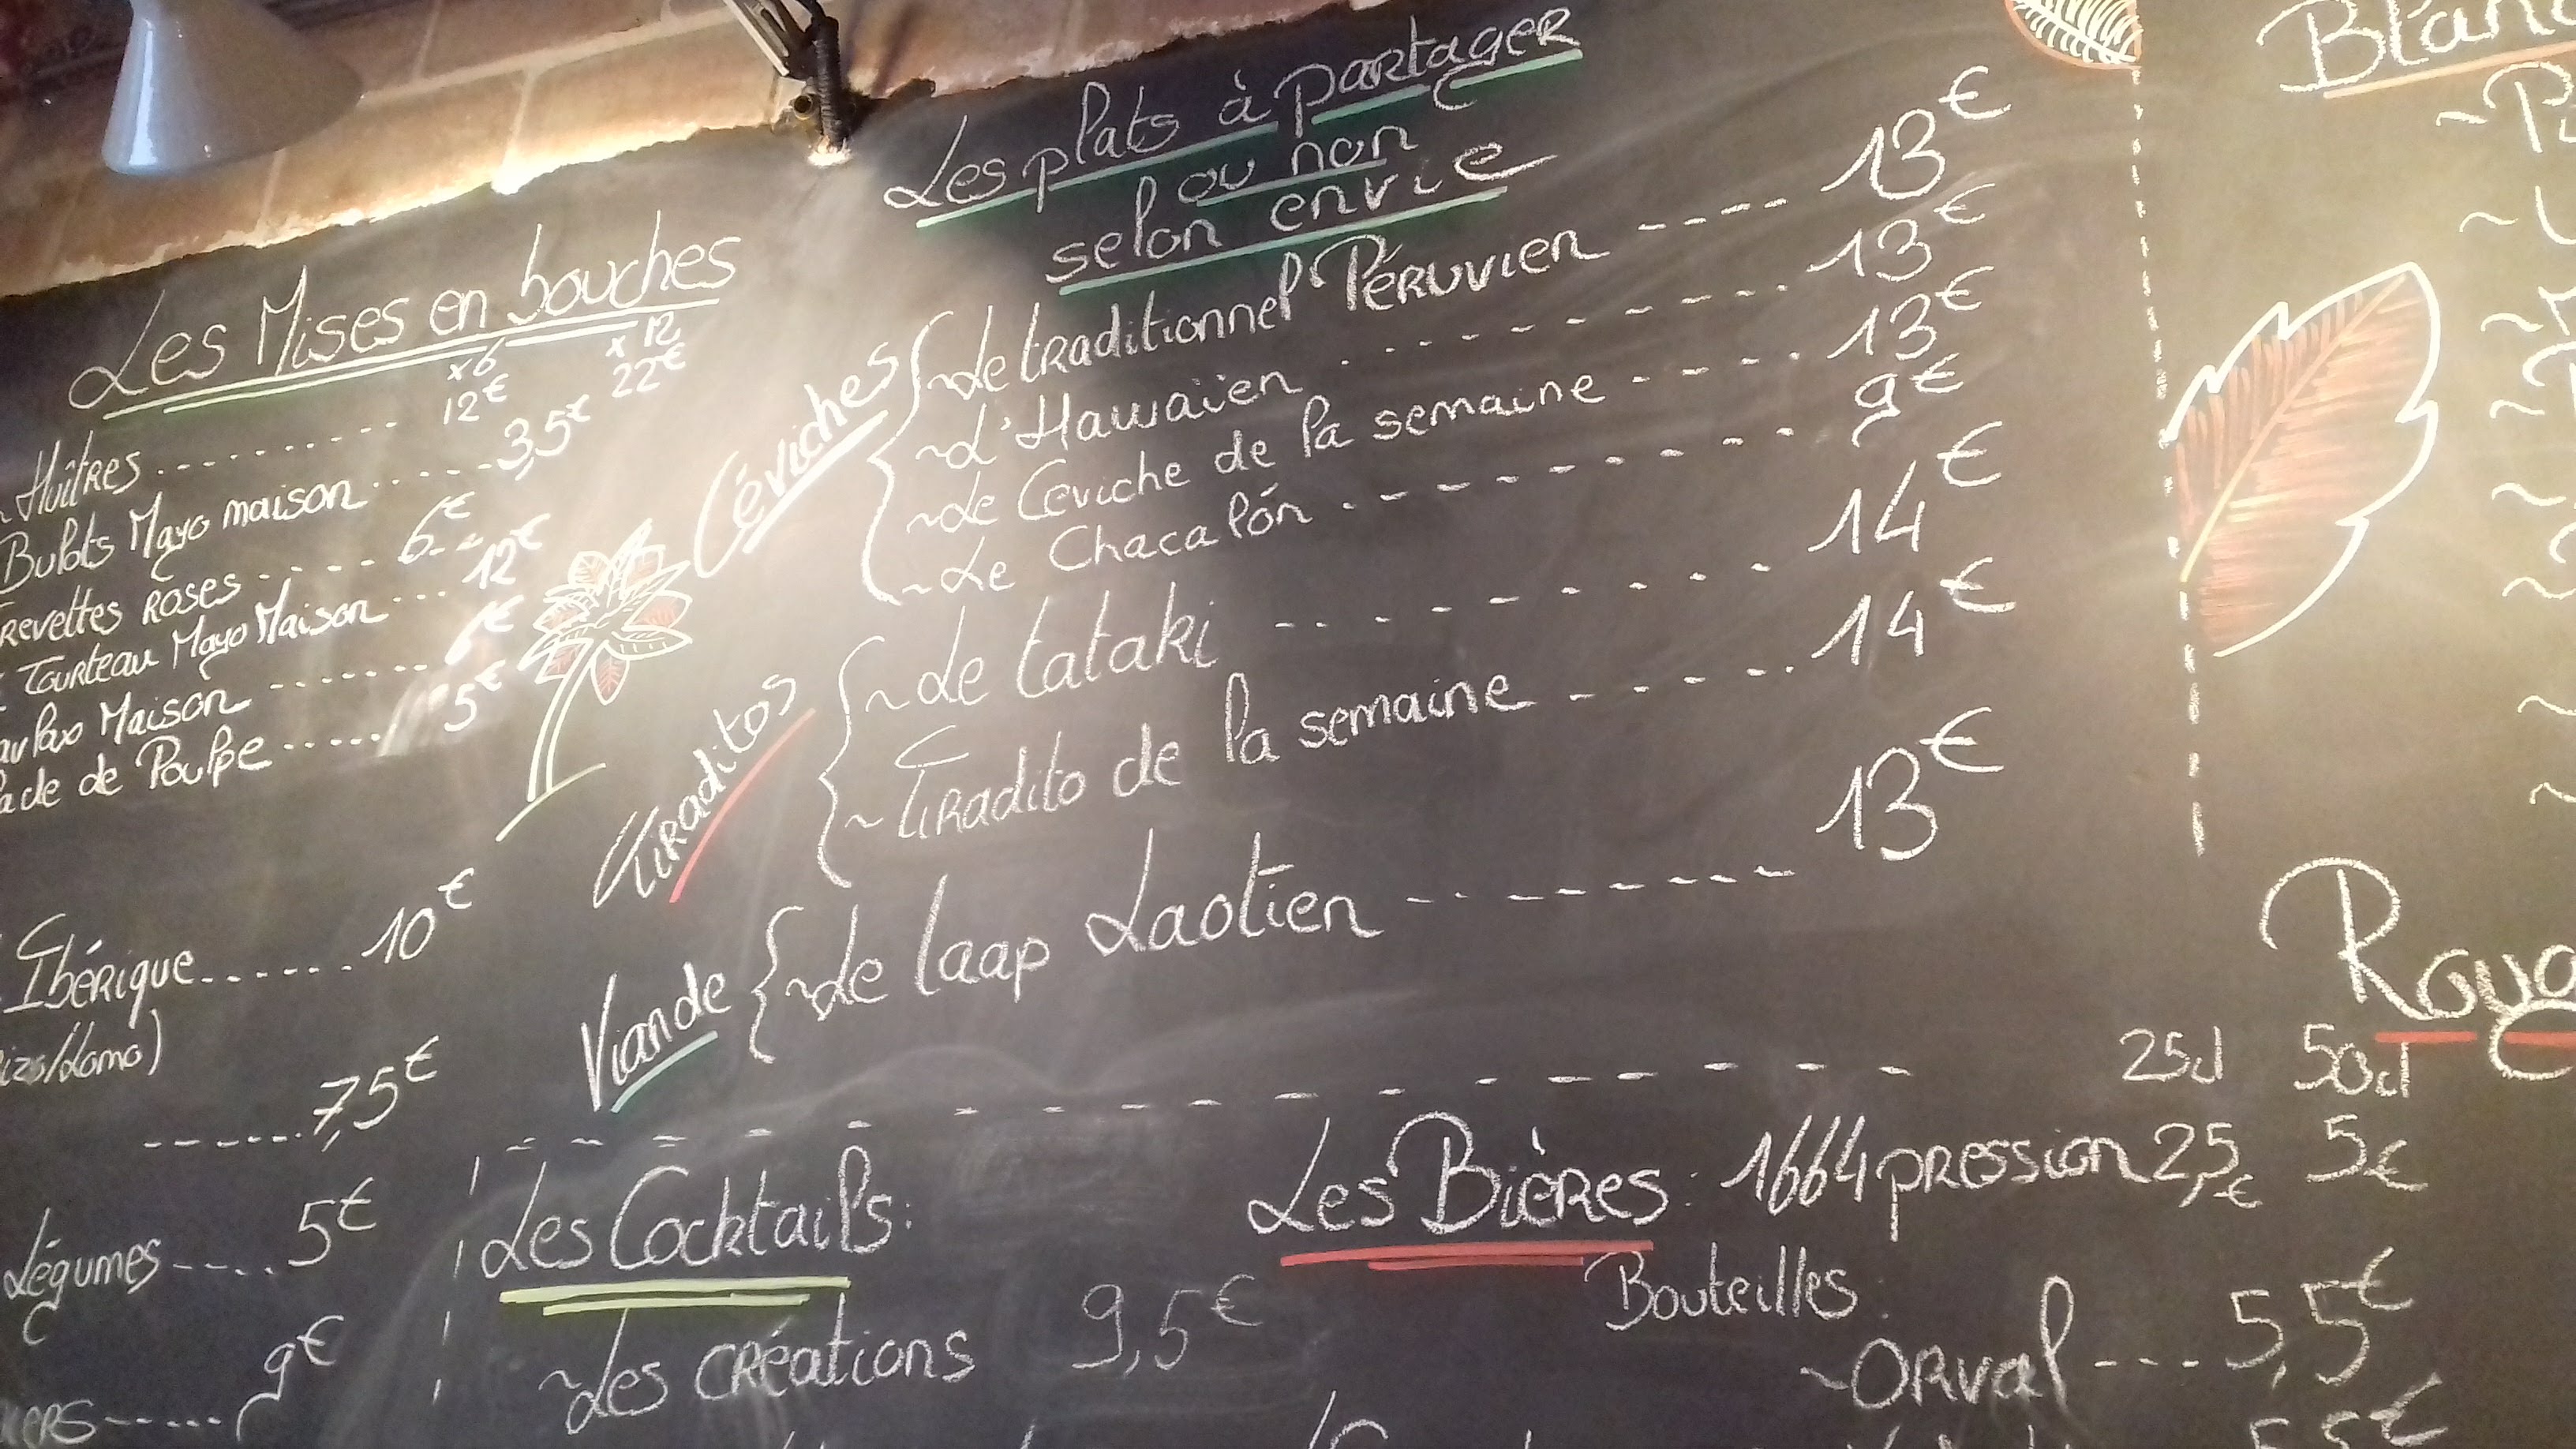 Les Mises en bouches
x6 x12
~ Huîtres .......... 12€ 22€
Bulots Mayo maison ...... 3,5€
revettes Roses ..... 6€
Tourteau Mayo Maison ... 12€
Maison ....... 6€
de Poulpe ..... 5€
Ibérique ...... 10€
/Lomo)
------ 7,5€
Légumes .... 5€
------ 9€
Les plats à partager
ou non
selon envie
Céviches
~ Le traditionnel Péruvien ---- 13€
~ L'Hawaïen --------- 13€
~ Le Ceviche de la semaine ---- 13€
~ Le Chacalón --------- 9€
Tiraditos
~ Le tataki --------- 14€
~ Tiradito de la semaine ------ 14€
Viande
~ Le laap Laotien --------- 13€
Les Cocktails:
~ Les créations 9,5€
25cl 50cl
Les Bières: 1664 pression 2,5€ 5€
Bouteilles
~ Orval ---- 5,5€
5,5€